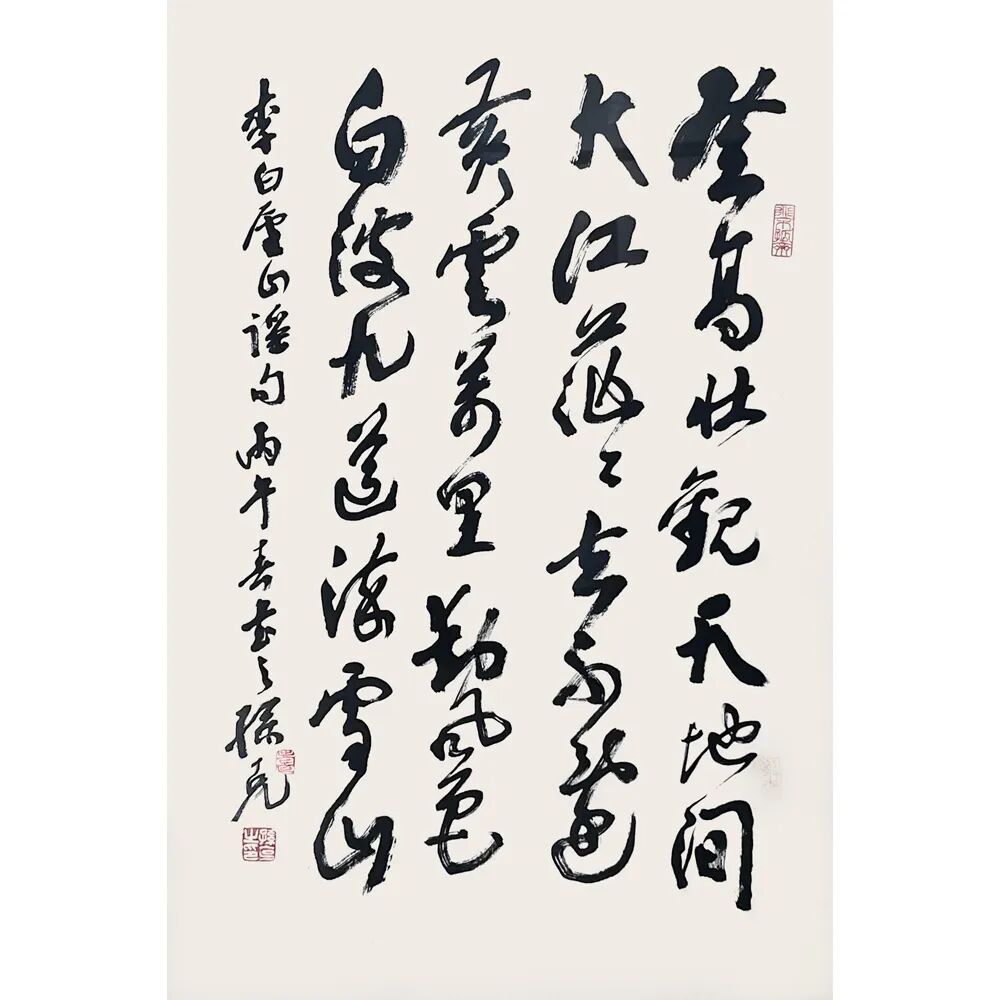 登高壮觀天地間
大江茫々去不還
黄雲萬里動風色
白波九道流雪山
李白廬山謡句丙午春之孫克